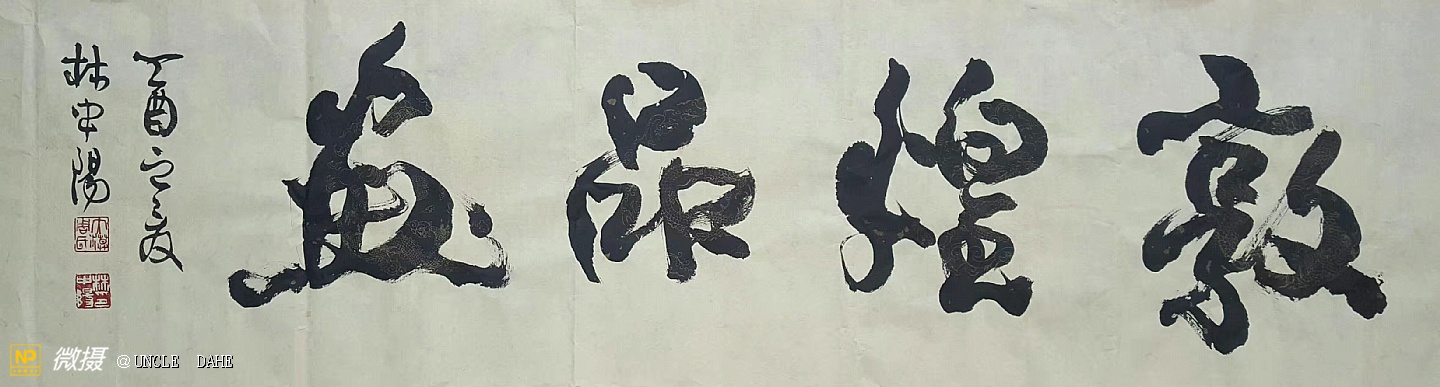 敦煌品逸
丁酉之夏
林中陽
NP 微摄 @UNCLE DAHE